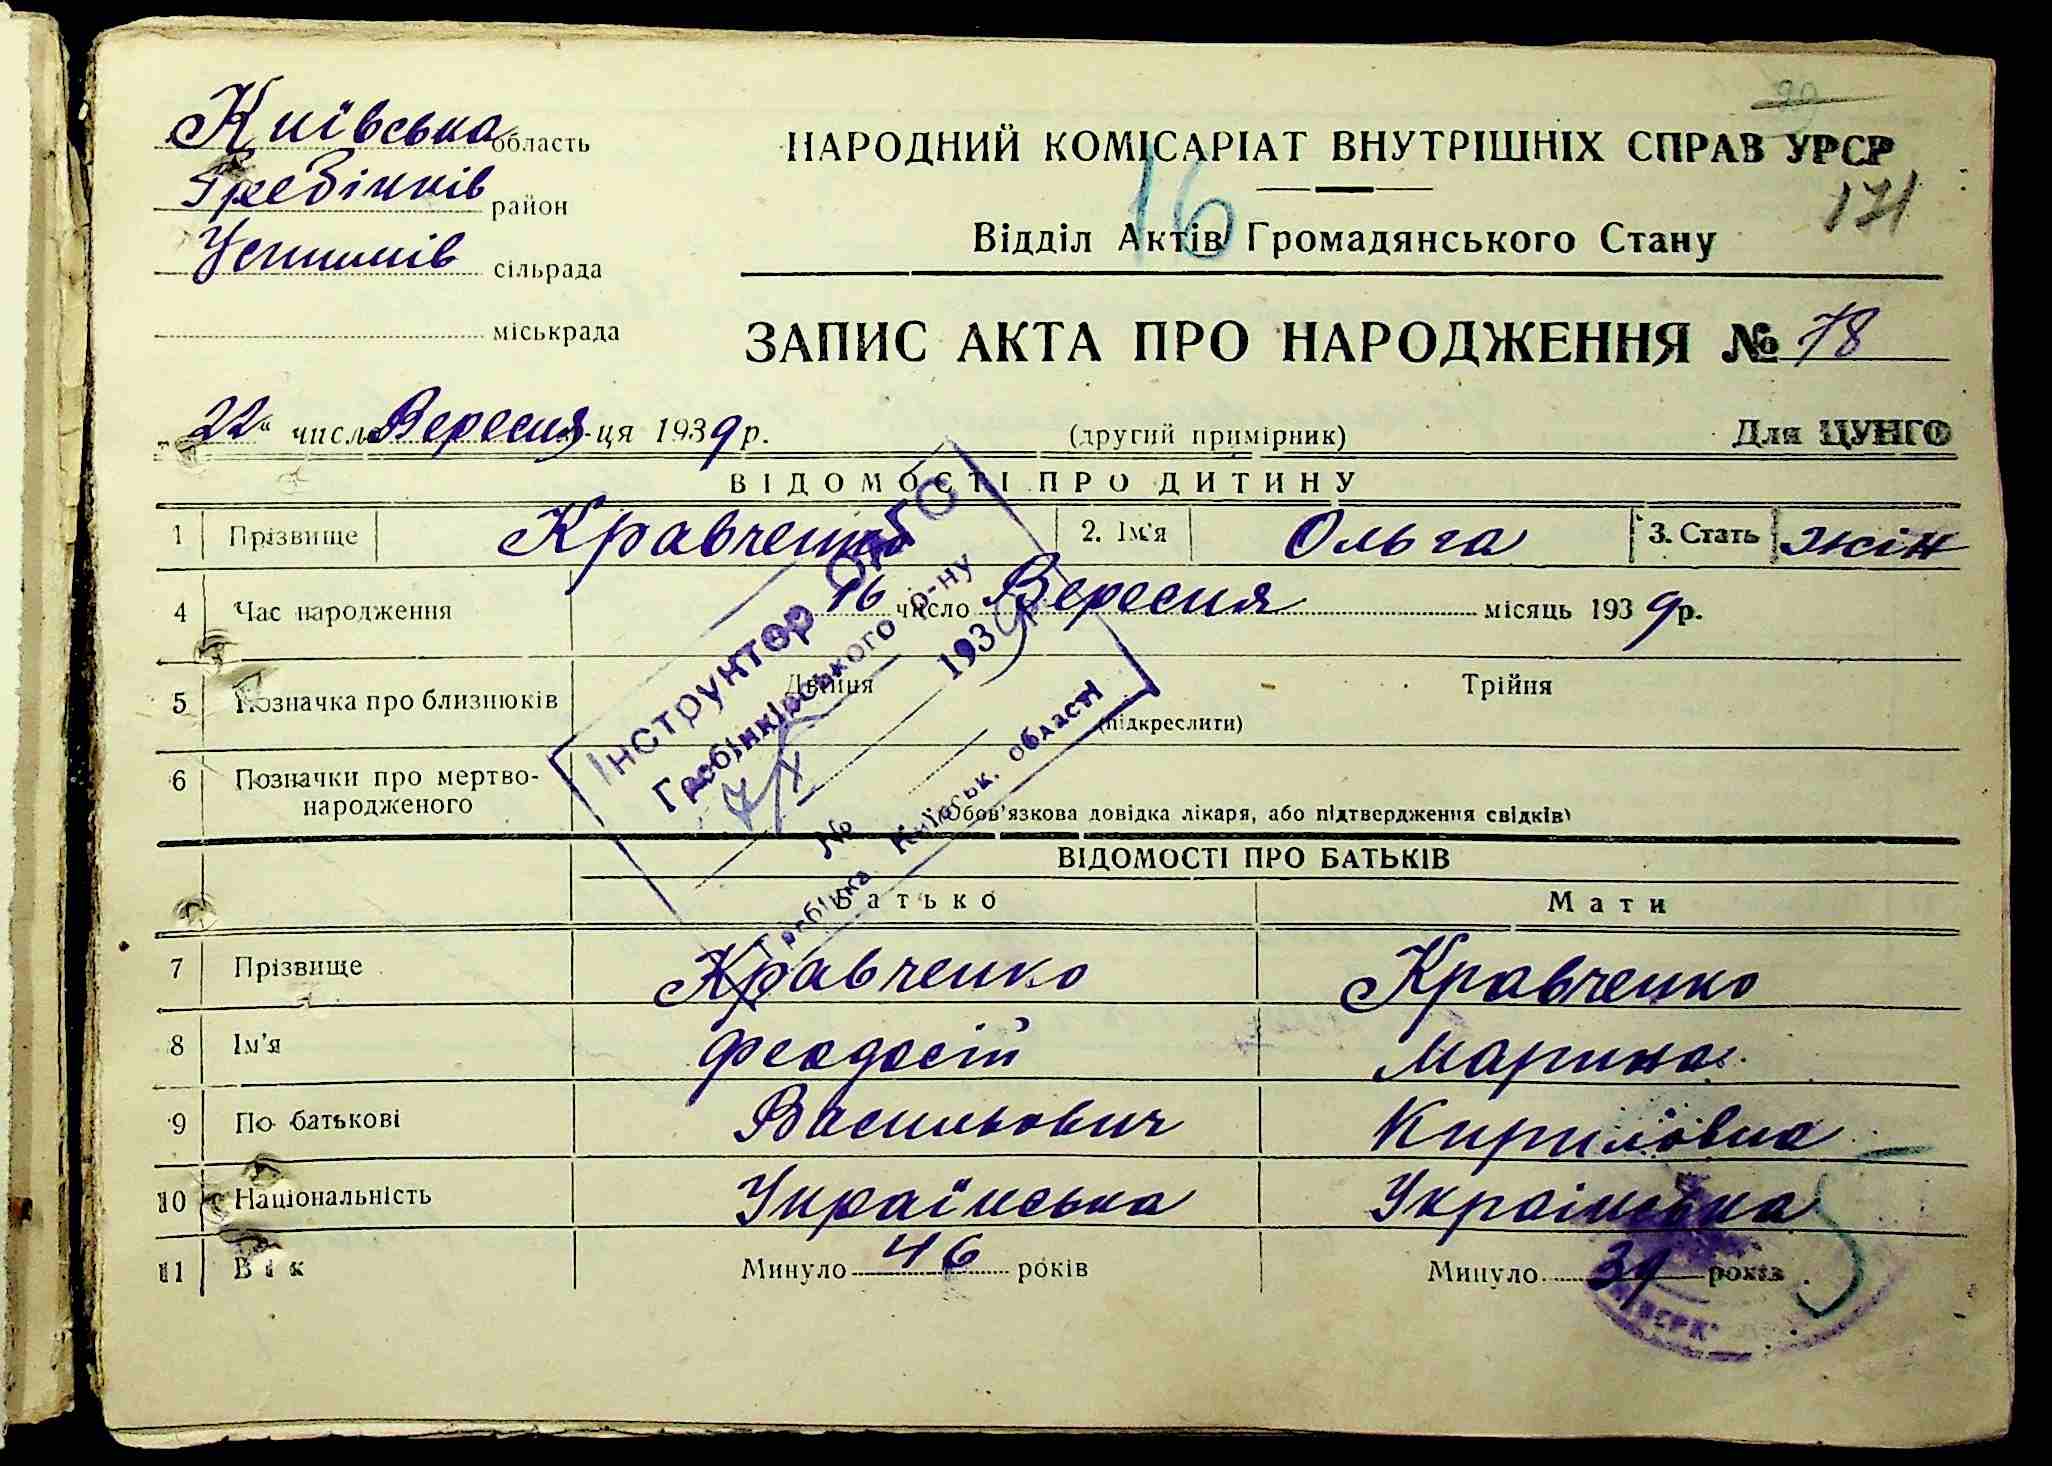 Київська область
Гребінків район
Устимків сільрада
міськрада
НАРОДНИЙ КОМІСАРІАТ ВНУТРІШНІХ СПРАВ УРСР
171
16
Відділ Актів Громадянського Стану
ЗАПИС АКТА ПРО НАРОДЖЕННЯ № 78
22 число Вересня м-ця 1939 р. (другий примірник) Для ЦУНГО
ВІДОМОСТІ ПРО ДИТИНУ
1 Прізвище Кравченко 2. Ім'я Ольга 3. Стать жін
4 Час народження 16 число Вересня місяць 1939 р.
5 Позначка про близнюків Двійня Трійня
(підкреслити)
6 Позначки про мертво-
народженого
(Обов'язкова довідка лікаря, або підтвердження свідків)
Інструктор ОАГС
Гребінківського р-ну
7/X 1939 р.
№
Гребінка Київськ. області
ВІДОМОСТІ ПРО БАТЬКІВ
Батько Мати
7 Прізвище Кравченко Кравченко
8 Ім'я Феодосій Марина
9 По батькові Васильович Кириловна
10 Національність Українська Українська
11 Вік Минуло 46 років Минуло 39 років